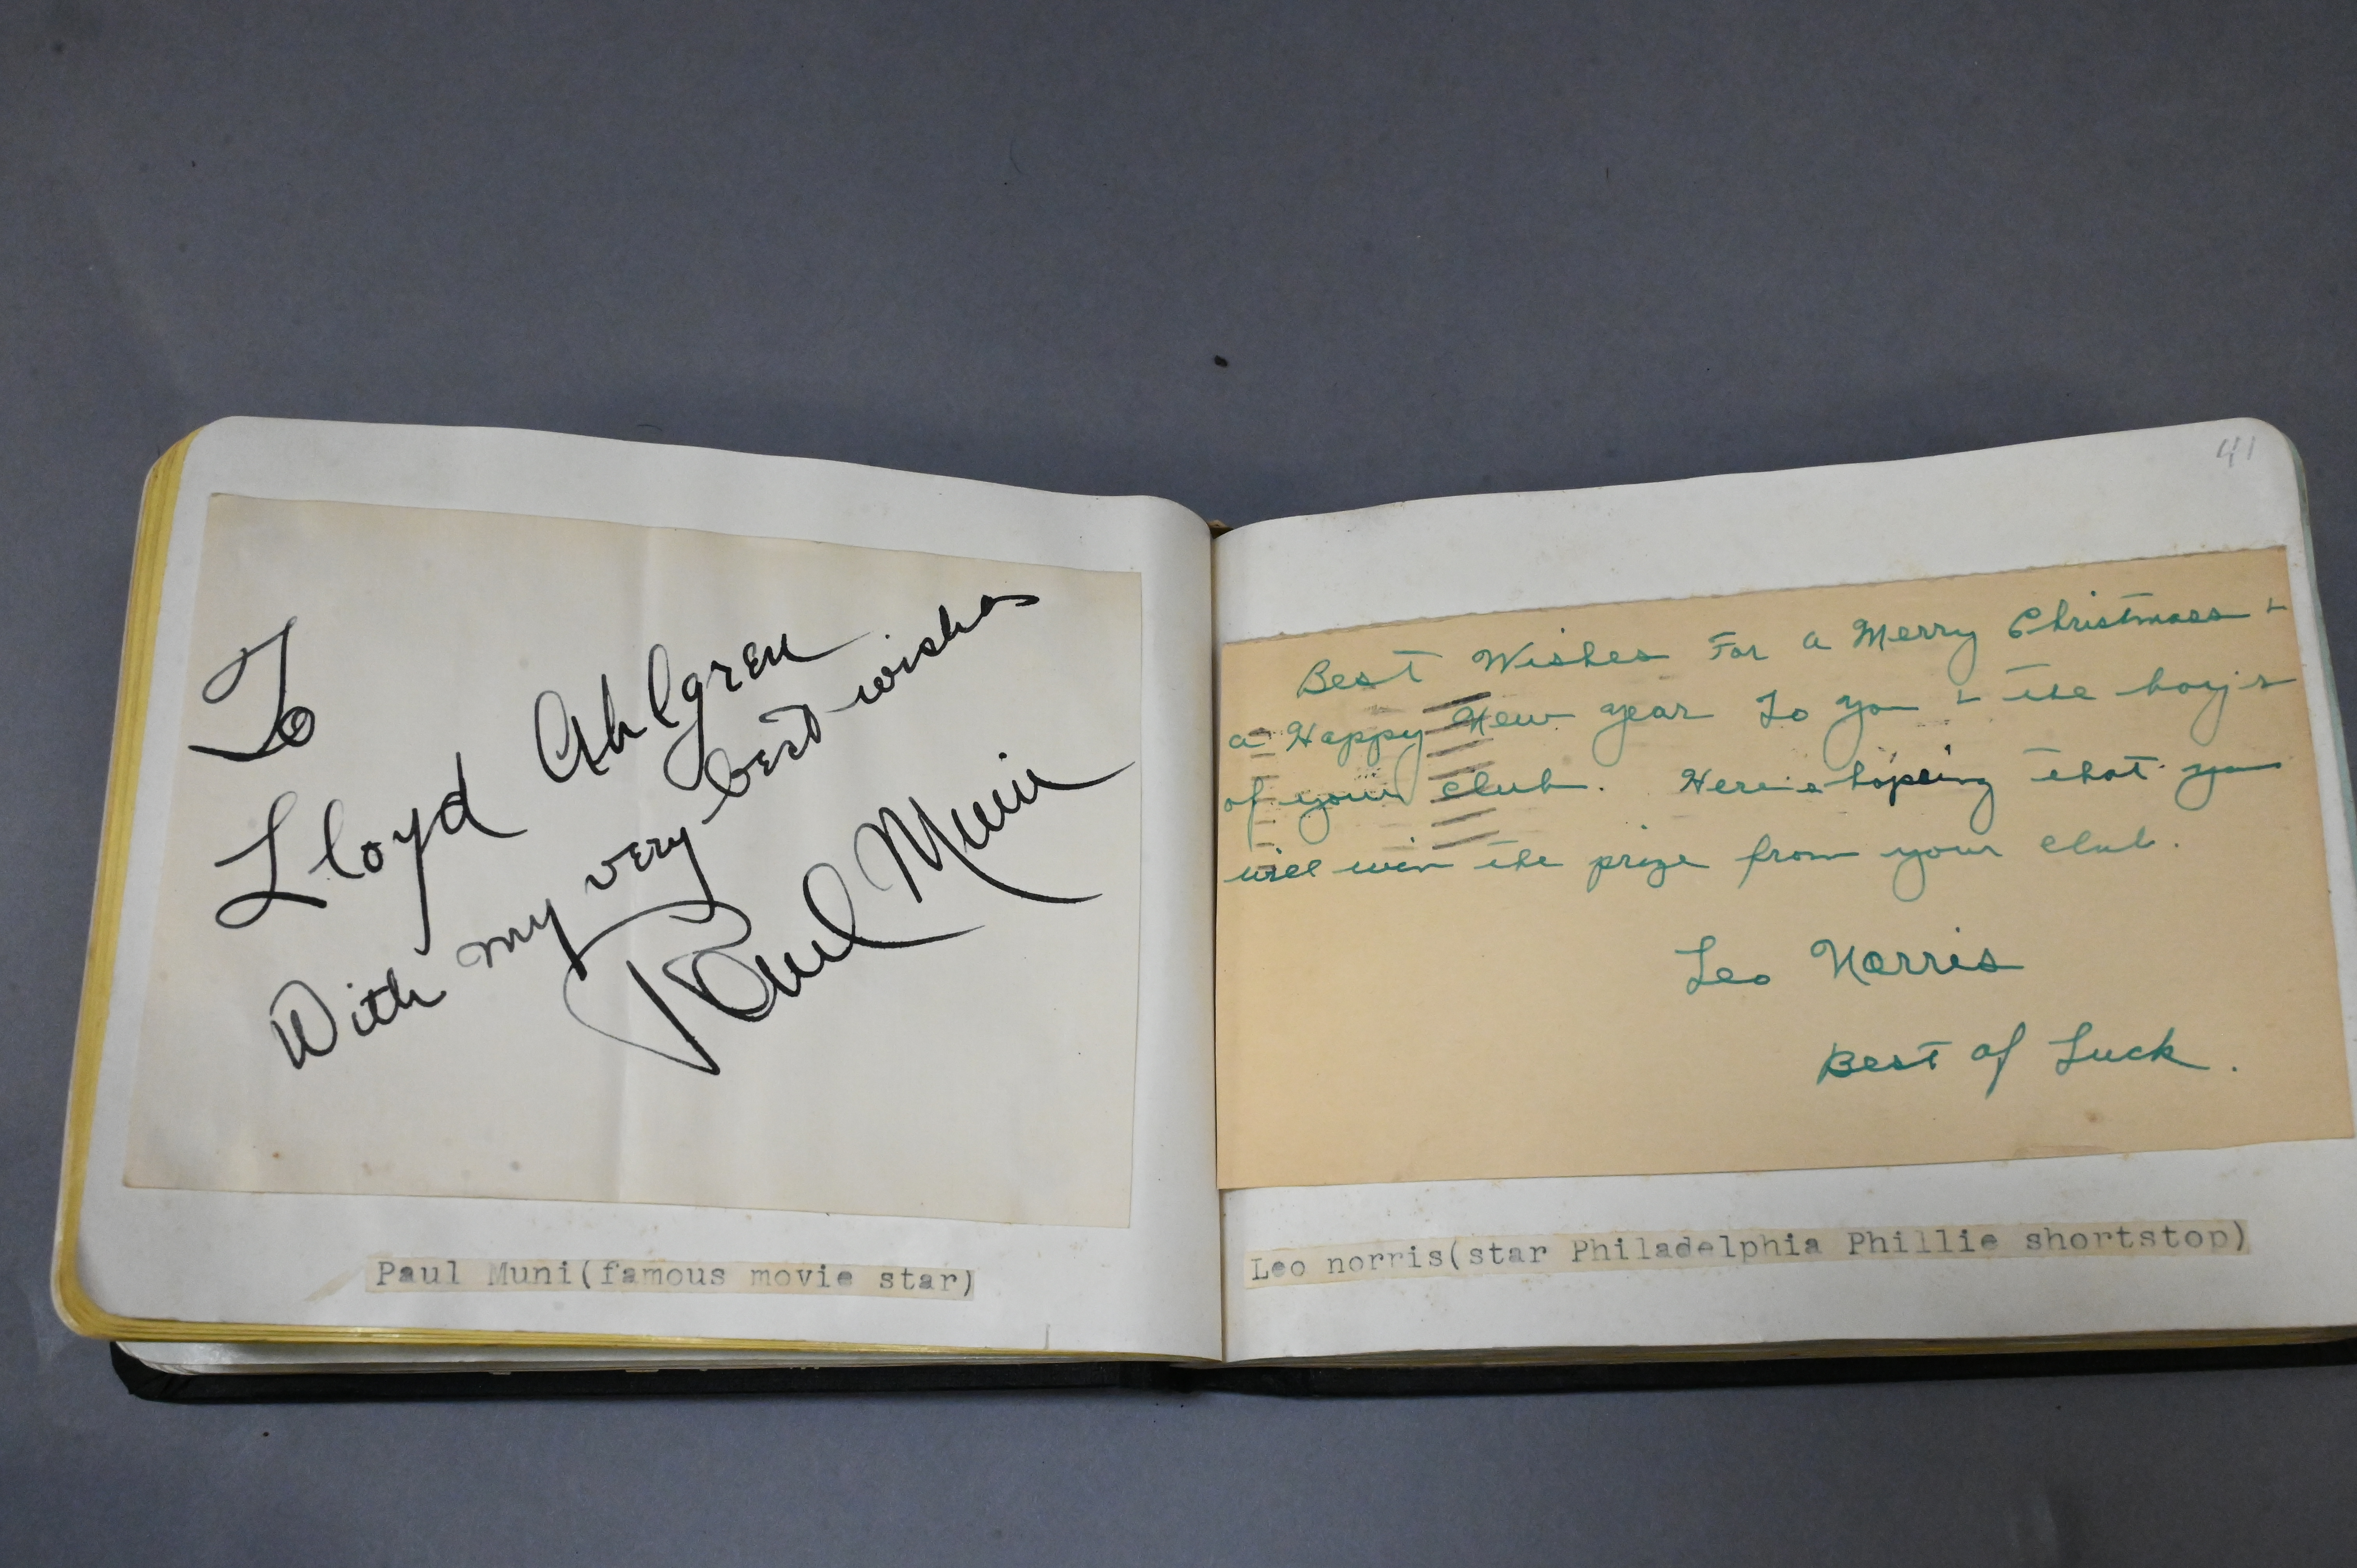 To
Lloyd Ahlgren
With my very best wishes
Paul Muni
Paul Muni(famous movie star)
41
Best Wishes For a Merry Christmass +
a Happy New year To you + the boy's
of your club. Here's hopeing that you
will win the prize from your club.
Leo Norris
Best of Luck.
Leo norris(star Philadelphia Phillie shortstop)